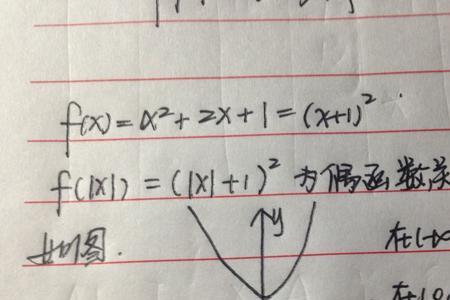 f(x)=x²+2x+1=(x+1)²
f(|x|)=(|x|+1)²为偶函数关
如图.
y
在(-∞
在(0